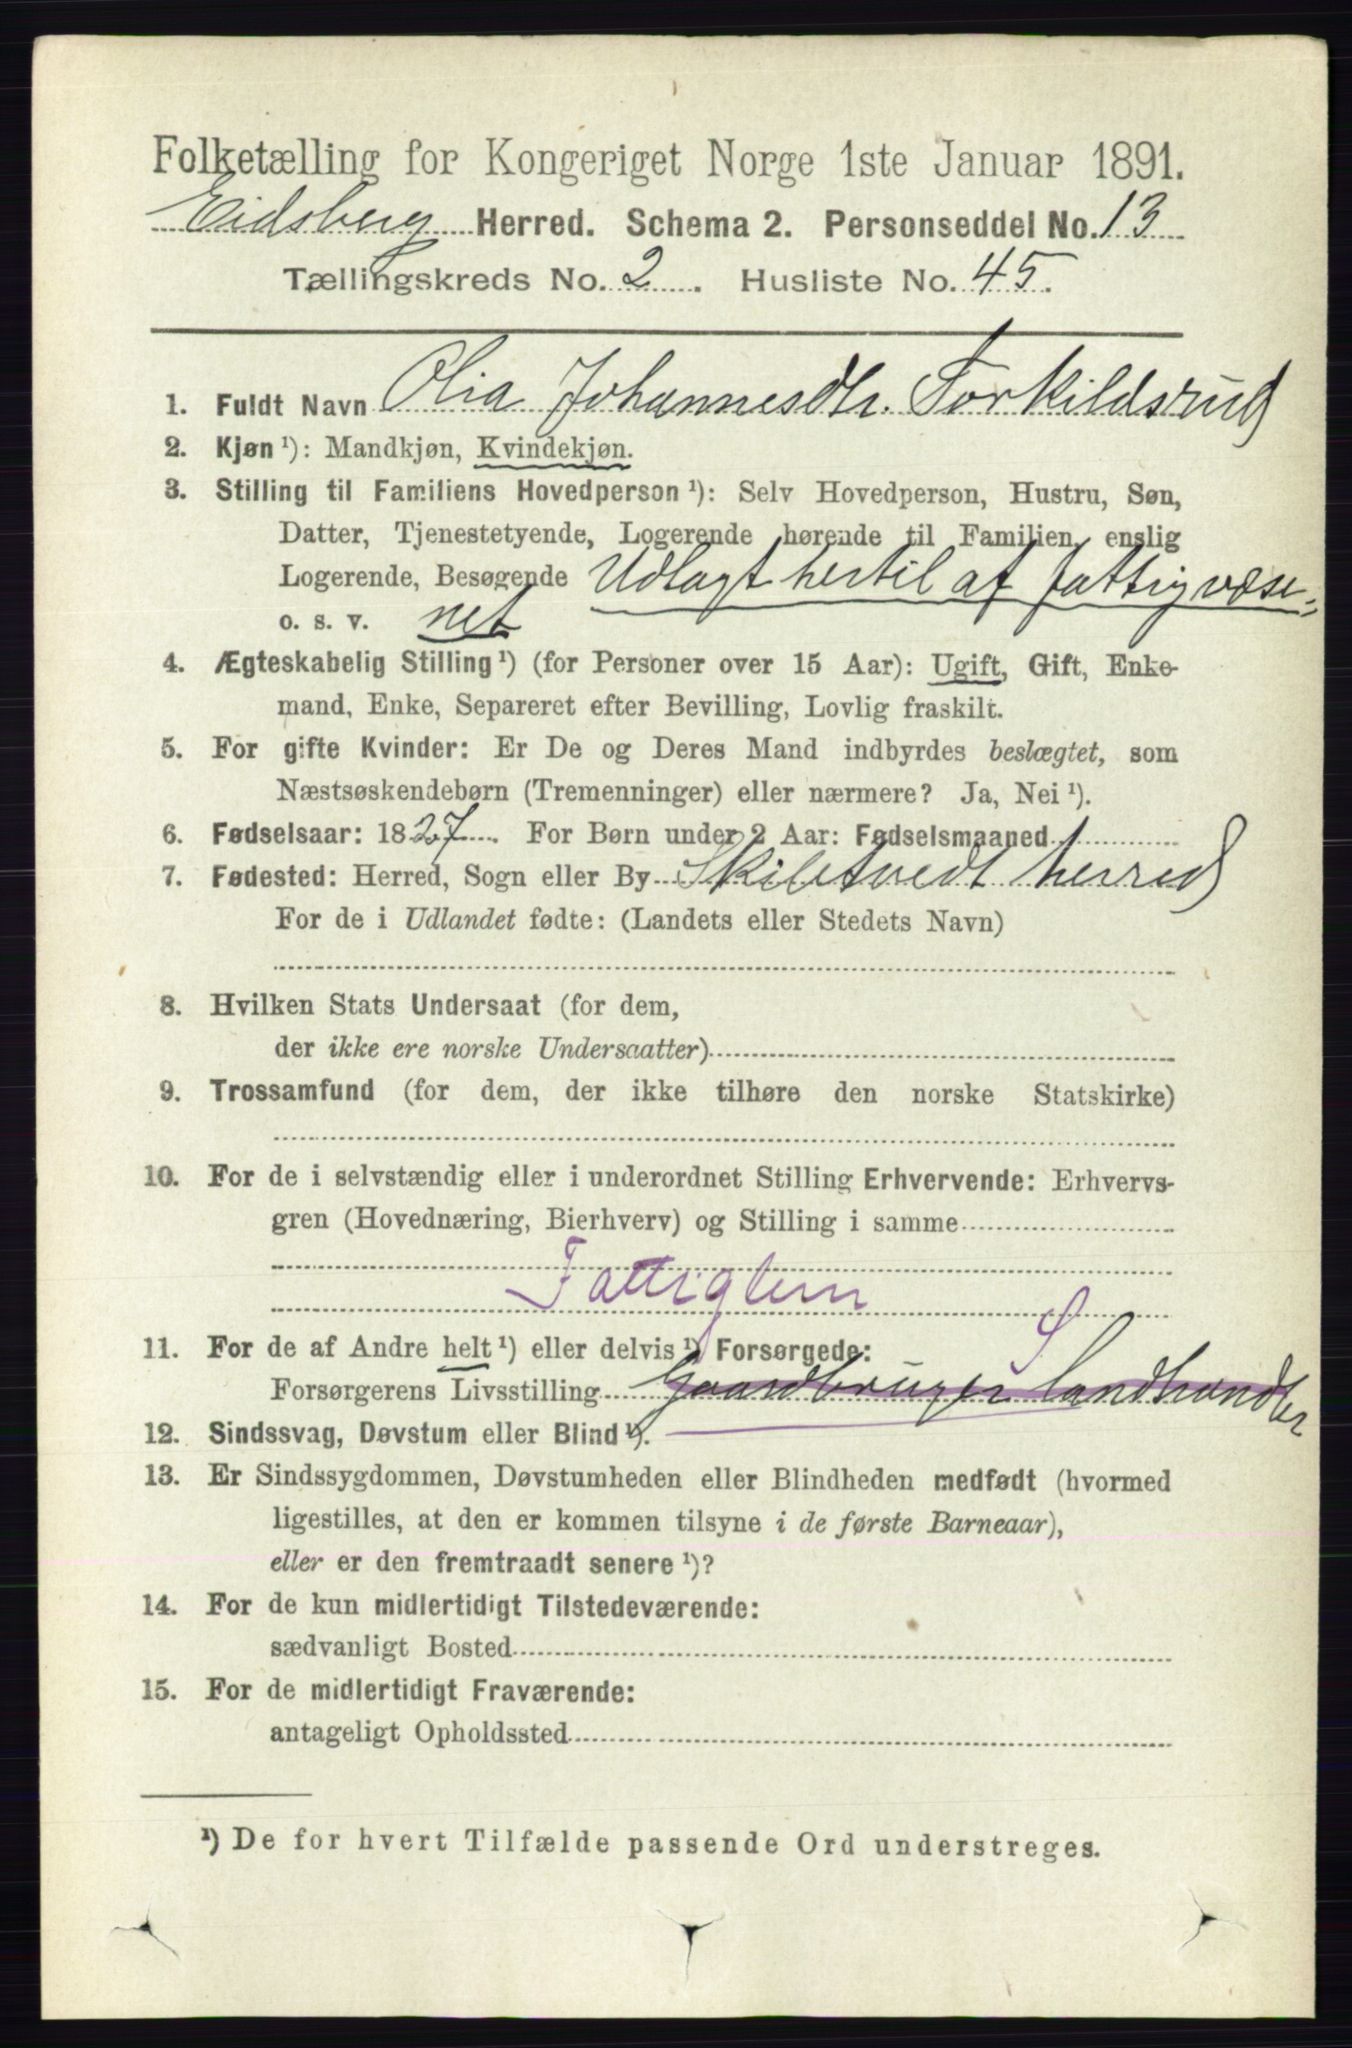 Folketælling for Kongeriget Norge 1ste Januar 1891.
Eidsberg Herred. Schema 2. Personseddel No. 13
Tællingskreds No. 2. Husliste No. 45.
1. Fuldt Navn Olia Johannesdtr. Torkildsrud
2. Kjøn ¹): Mandkjøn, Kvindekjøn.
3. Stilling til Familiens Hovedperson ¹): Selv Hovedperson, Hustru, Søn,
Datter, Tjenestetyende, Logerende hørende til Familien, enslig
Logerende, Besøgende Udlagt hertil af Fattigvæse-
o. s. v. net
4. Ægteskabelig Stilling ¹) (for Personer over 15 Aar): Ugift, Gift, Enke-
mand, Enke, Separeret efter Bevilling, Lovlig fraskilt.
5. For gifte Kvinder: Er De og Deres Mand indbyrdes beslægtet, som
Næstsøskendebørn (Tremenninger) eller nærmere? Ja, Nei ¹).
6. Fødselsaar: 1827. For Børn under 2 Aar: Fødselsmaaned
7. Fødested: Herred, Sogn eller By Skibtvedt herred
For de i Udlandet fødte: (Landets eller Stedets Navn)
8. Hvilken Stats Undersaat (for dem,
der ikke ere norske Undersaatter)
9. Trossamfund (for dem, der ikke tilhøre den norske Statskirke)
10. For de i selvstændig eller i underordnet Stilling Erhvervende: Erhvervs-
gren (Hovednæring, Bierhverv) og Stilling i samme
Fattiglem
11. For de af Andre helt ¹) eller delvis ¹) Forsørgede:
Forsørgerens Livsstilling Gaardbruger Landhandler
12. Sindssvag, Døvstum eller Blind ¹).
13. Er Sindssygdommen, Døvstumheden eller Blindheden medfødt (hvormed
ligestilles, at den er kommen tilsyne i de første Barneaar),
eller er den fremtraadt senere ¹)?
14. For de kun midlertidigt Tilstedeværende:
sædvanligt Bosted
15. For de midlertidigt Fraværende:
antageligt Opholdssted
¹) De for hvert Tilfælde passende Ord understreges.